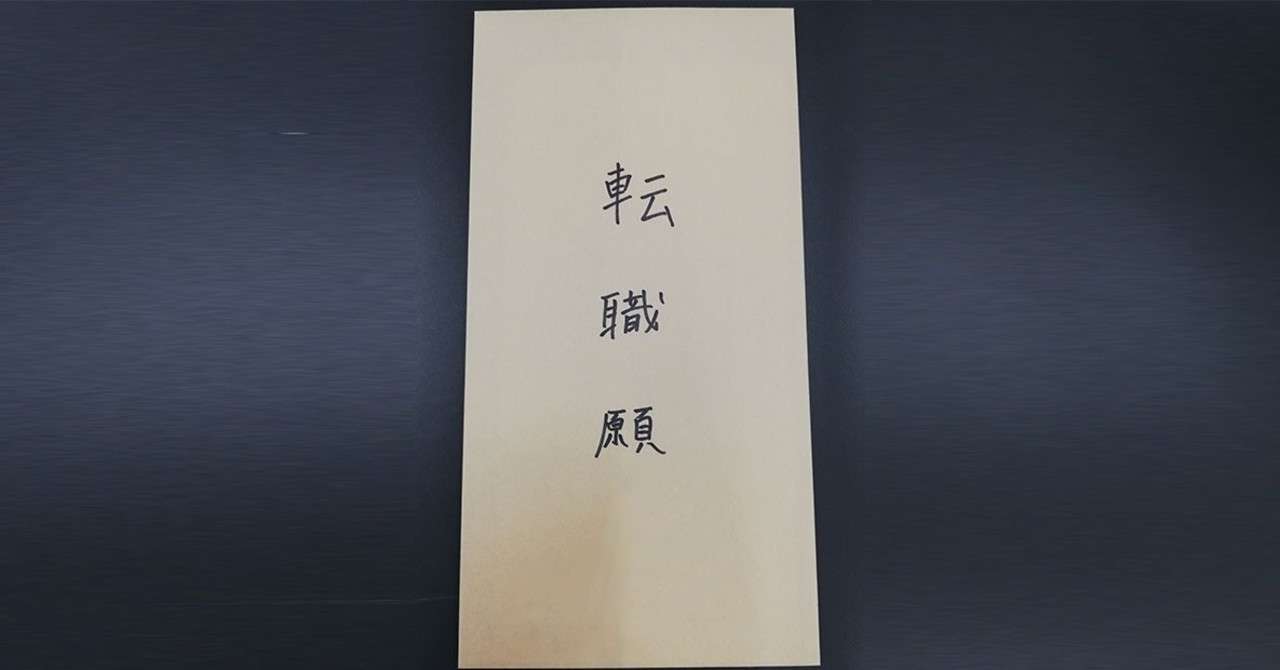 転職願